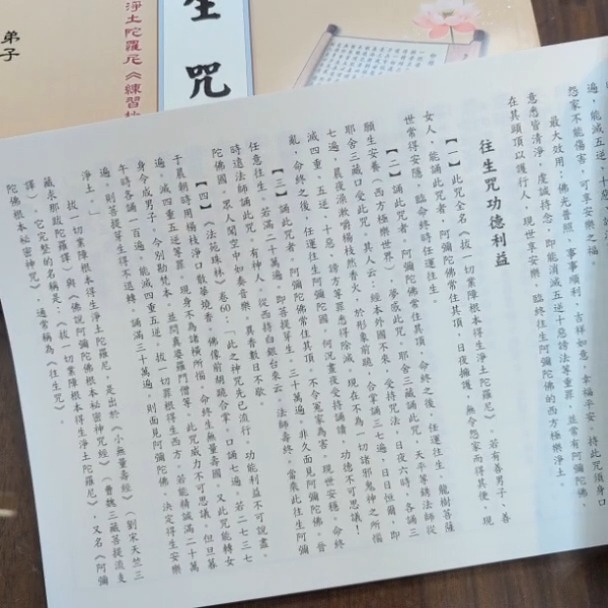 生咒
淨土陀羅尼《練習
弟子
遍,能減四重五逆
怨家不能傷害,可享安樂之福。
最大效用:佛光普照,事事順利,吉祥如意,幸福平安,持此咒須身口
意悉皆清淨,虔誠持念,即能消滅五逆十惡謗法等重罪,並常有阿彌陀佛,
在其頭頂以護行人,現世享安樂,臨終往生阿彌陀佛的西方極樂淨土。
往生咒功德利益
【一】此咒全名《拔一切業障根本得生淨土陀羅尼》。若有善男子、善
女人,能誦此咒者,阿彌陀佛常住其頂,日夜擁護,無令怨家而得其便,現
世常得安隱,臨命終時任運往生。
【二】誦此咒者,阿彌陀佛常住其頂,命終之後,任運往生。龍樹菩薩
願生安養(西方極樂世界),夢感此咒。耶舍三藏誦此咒,天平等銹法師從
耶舍三藏口受此咒。其人云:經本外國不來,受持咒法,日夜六時,各誦三
七遍,晨夜漱嚼楊枝然香火,於形象前跪,合掌誦三七遍,日日恒爾,即
滅四重、五逆、十惡、謗方等罪悉得除滅,現在不為一切諸邪鬼神之所惱
亂,命終之後,任運往生阿彌陀國,何況晝夜受持誦讀,功德不可思議!
【三】誦此咒者,阿彌陀佛常住其頂,不令冤家為害,現世安穩,命終
任意往生。若滿二十萬遍,即菩提芽生,三十萬遍,非久面見阿彌陀佛。晉
時遠法師誦此咒,有神人,從西持白銀台來云,法師壽終,當乘此往生阿彌
陀佛國,眾人聞空中如奏音樂,異香數日不歇。
【四】《法苑珠林》卷60:「此之神咒先已流行,功能利益不可說盡。
于晨朝時用楊枝淨口散華燒香,佛像前胡跪合掌,口誦七遍,若二七三七
遍,滅四重五逆等罪,現身不為諸橫所惱,命終生無量壽國,又此咒能轉女
身令成男子,今別勘梵本,並問真婆羅門僧等,此咒威力不可思議,但旦暮
午時各誦一百遍,能滅四重五逆,拔一切罪根得生西方。若能精誠滿二十萬
遍,則菩提芽生得不退轉。誦滿三十萬遍,則面見阿彌陀佛,決定得生安樂
淨土。」
拔一切業障根本得生淨土陀羅尼,是出於《小無量壽經》(劉宋天竺三
藏求那跋陀羅譯)與《佛說阿彌陀佛根本秘密神咒經》(曹魏三藏菩提流支
譯)。它完整的名稱是:《拔一切業障根本得生淨土陀羅尼》,又名《阿彌
陀佛根本秘密神咒》,通常稱為《往生咒》。